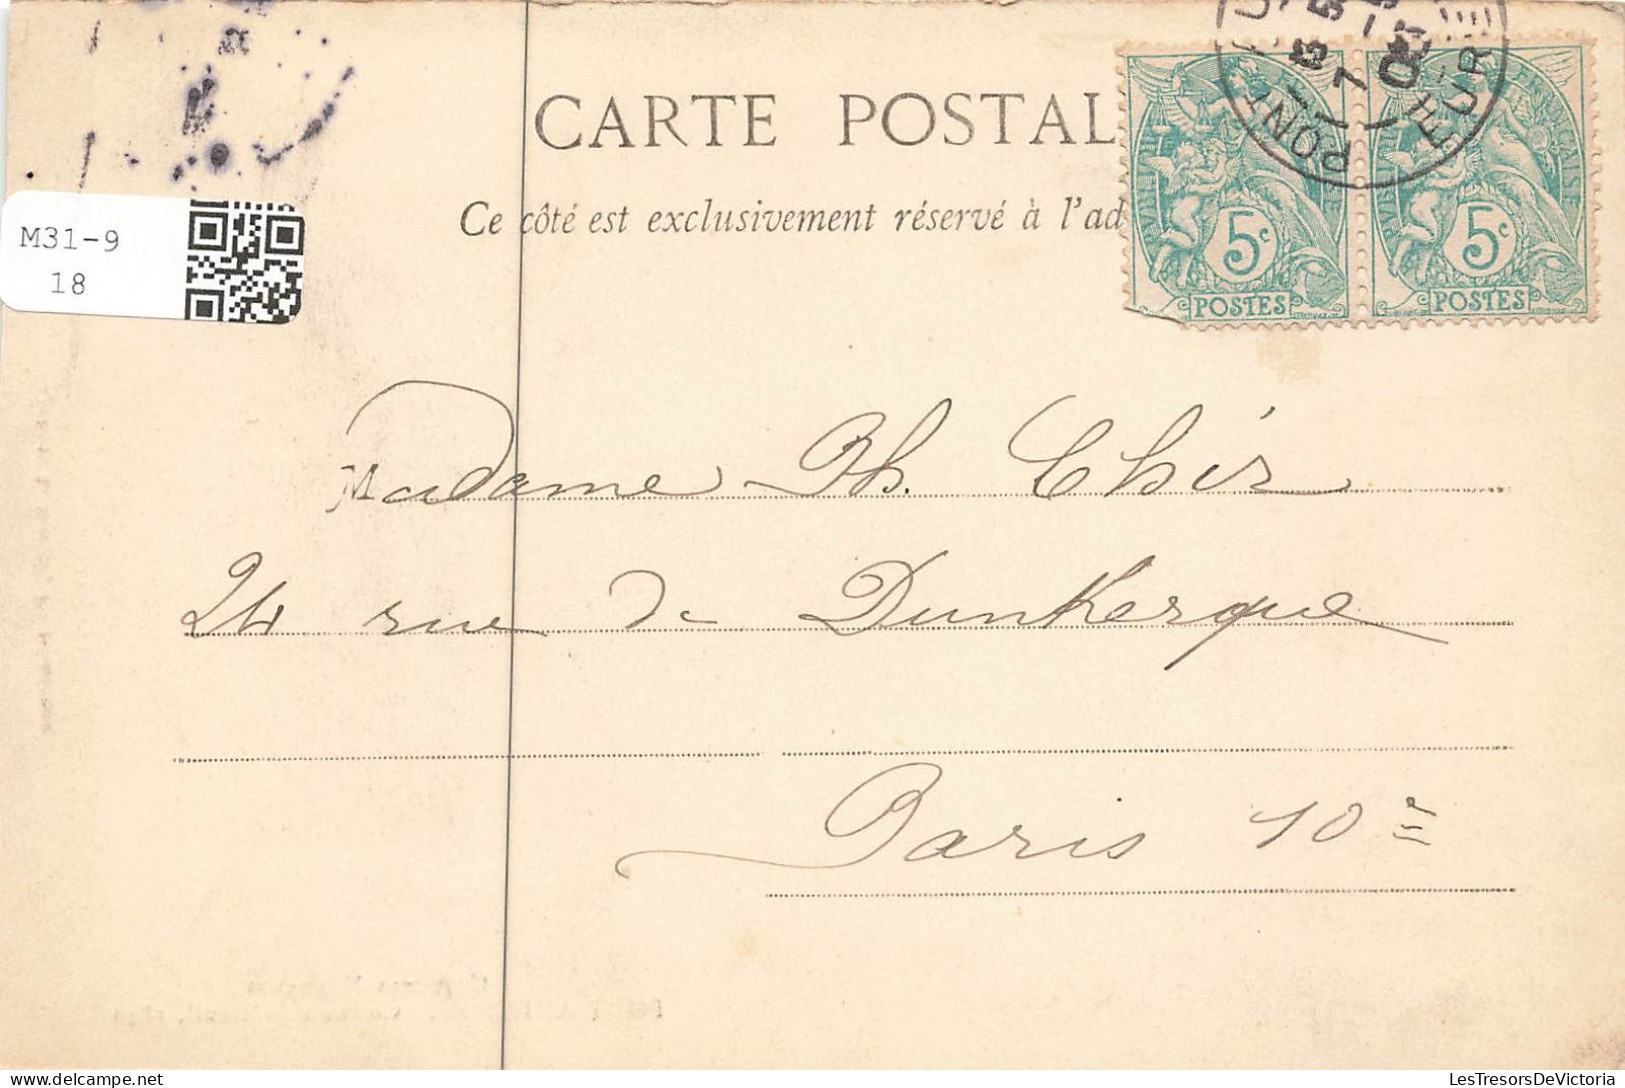 CARTE POSTAL
Ce côté est exclusivement réservé à l'ad
M31-9
18
5c
POSTES
5c
POSTES
PONT
EUR
Madame Ph. Chér
24 rue de Dunkerque
Paris 10e
LesTresorsDeVictoria